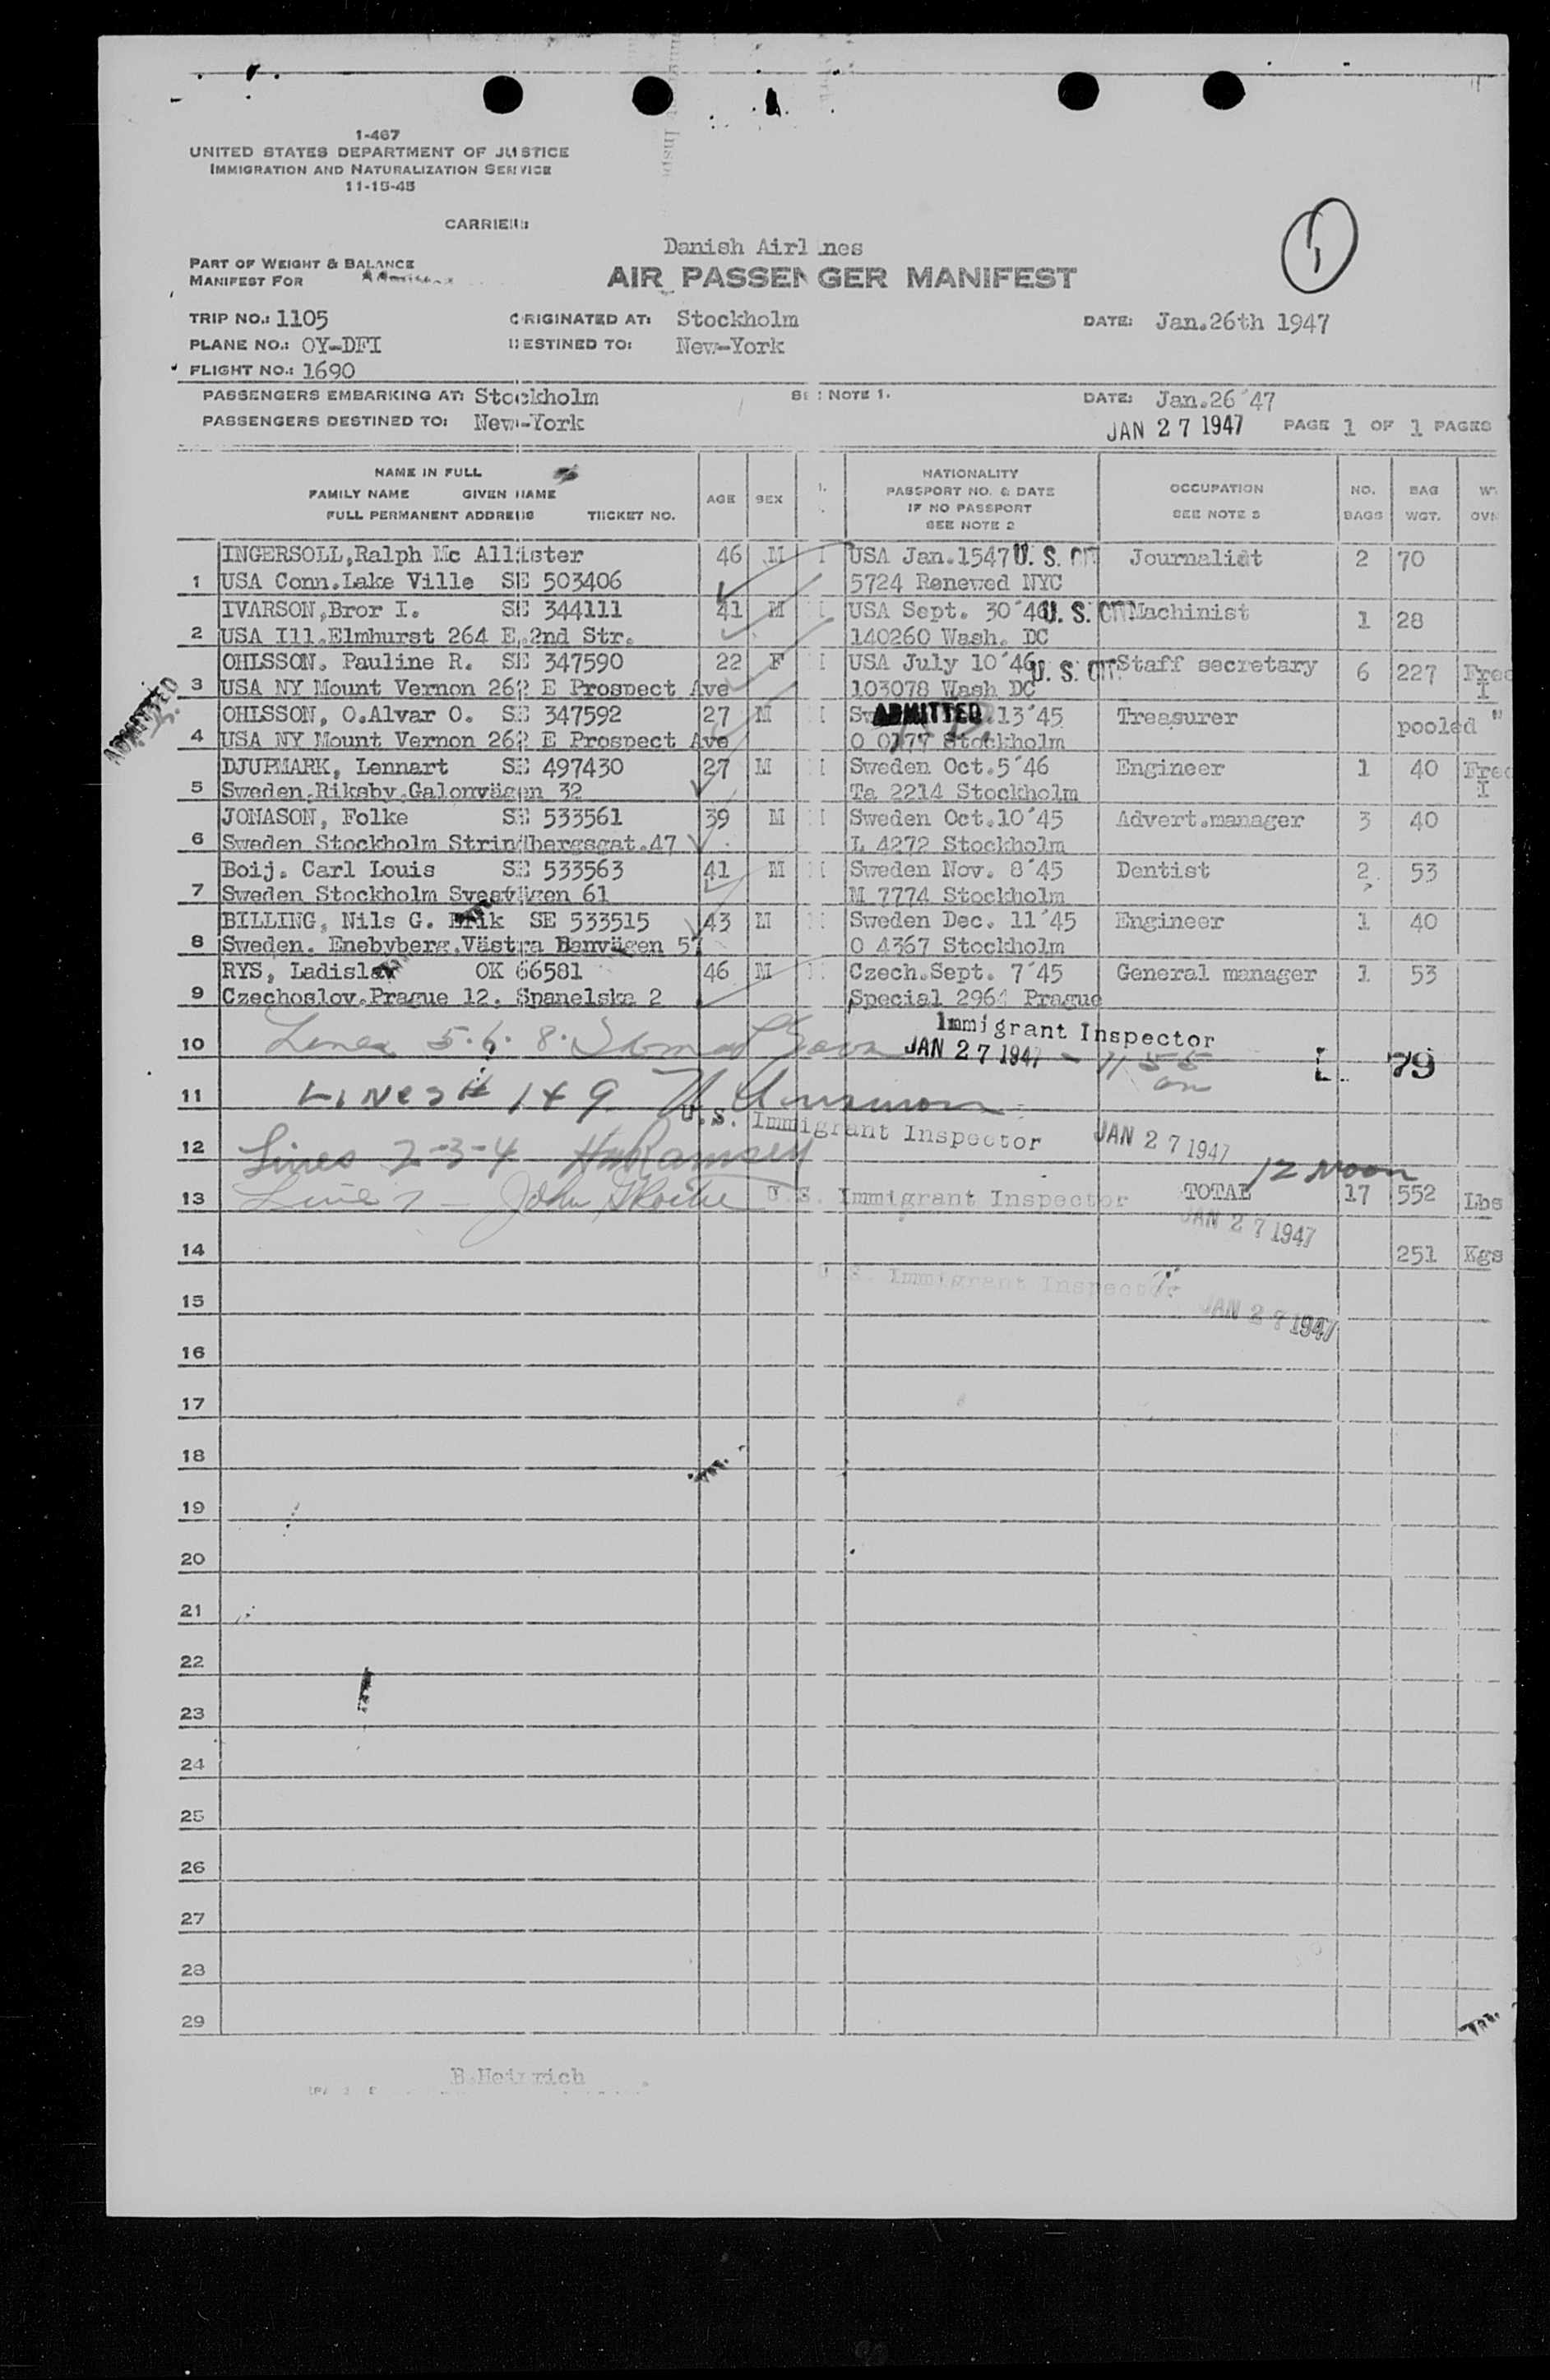 1-467
UNITED STATES DEPARTMENT OF JUSTICE
IMMIGRATION AND NATURALIZATION SERVICE
11-15-45
CARRIER:
Danish Airl nes
PART OF WEIGHT & BALANCE
MANIFEST FOR
AIR PASSENGER MANIFEST
TRIP NO.: 1105 ORIGINATED AT: Stockholm DATE: Jan.26th 1947
PLANE NO.: OY-DFI DESTINED TO: New-York
FLIGHT NO.: 1690
PASSENGERS EMBARKING AT: Stockholm SEE NOTE 1. DATE: Jan.26'47
PASSENGERS DESTINED TO: New-York JAN 27 1947 PAGE 1 OF 1 PAGES
NAME IN FULL NATIONALITY
FAMILY NAME GIVEN NAME AGE SEX PASSPORT NO. & DATE OCCUPATION NO. BAG
FULL PERMANENT ADDRESS TICKET NO. IF NO PASSPORT SEE NOTE 3 BAGS WGT.
SEE NOTE 2
INGERSOLL,Ralph Mc Allister 46 M USA Jan.1547 U. S. CIT Journalist 2 70
1 USA Conn.Lake Ville SE 503406 5724 Renewed NYC
IVARSON,Bror I. SE 344111 41 M USA Sept. 30'46 U. S. CIT Machinist 1 28
2 USA Ill.Elmhurst 264 E.2nd Str. 140260 Wash. DC
OHLSSON. Pauline R. SE 347590 22 F USA July 10'46 U. S. CIT. Staff secretary 6 227
3 USA NY Mount Vernon 262 E Prospect Ave 103078 Wash DC
ADMITTED
OHLSSON, O.Alvar O. SE 347592 27 M Sw ADMITTED 13'45 Treasurer pooled "
4 USA NY Mount Vernon 262 E Prospect Ave O 0177 Stockholm
DJUPMARK, Lennart SE 497430 27 M Sweden Oct.5'46 Engineer 1 40
5 Sweden.Riksby.Galonvägen 32 Ta 2214 Stockholm
JONASON, Folke SE 533561 39 M Sweden Oct.10'45 Advert.manager 3 40
6 Sweden Stockholm Strindbergsgat.47 L 4272 Stockholm
Boij. Carl Louis SE 533563 41 M Sweden Nov. 8'45 Dentist 2 53
7 Sweden Stockholm Sveavägen 61 M 7774 Stockholm
BILLING, Nils G. Erik SE 533515 43 M Sweden Dec. 11'45 Engineer 1 40
8 Sweden. Enebyberg.Västra Banvägen 57 O 4367 Stockholm
RYS, Ladislav OK 66581 46 M Czech.Sept. 7'45 General manager 1 53
9 Czechoslov.Prague 12. Spanelska 2 Special 2964 Prague
Immigrant Inspector
10 Lines 5.6.8. JAN 27 1947 - 11 55 am 79
11 Lines 1 & 9
U.S. Immigrant Inspector JAN 27 1947
12 Lines 2-3-4 HW Ramsey 12 Noon
13 Line 7 - John U.S. Immigrant Inspector TOTAL 17 552 Lbs
JAN 27 1947
14 251 Kgs
U.S. Immigrant Inspector
15 JAN 27 1947
16
17
18
19
20
21
22
23
24
25
26
27
28
29
B.Heinrich